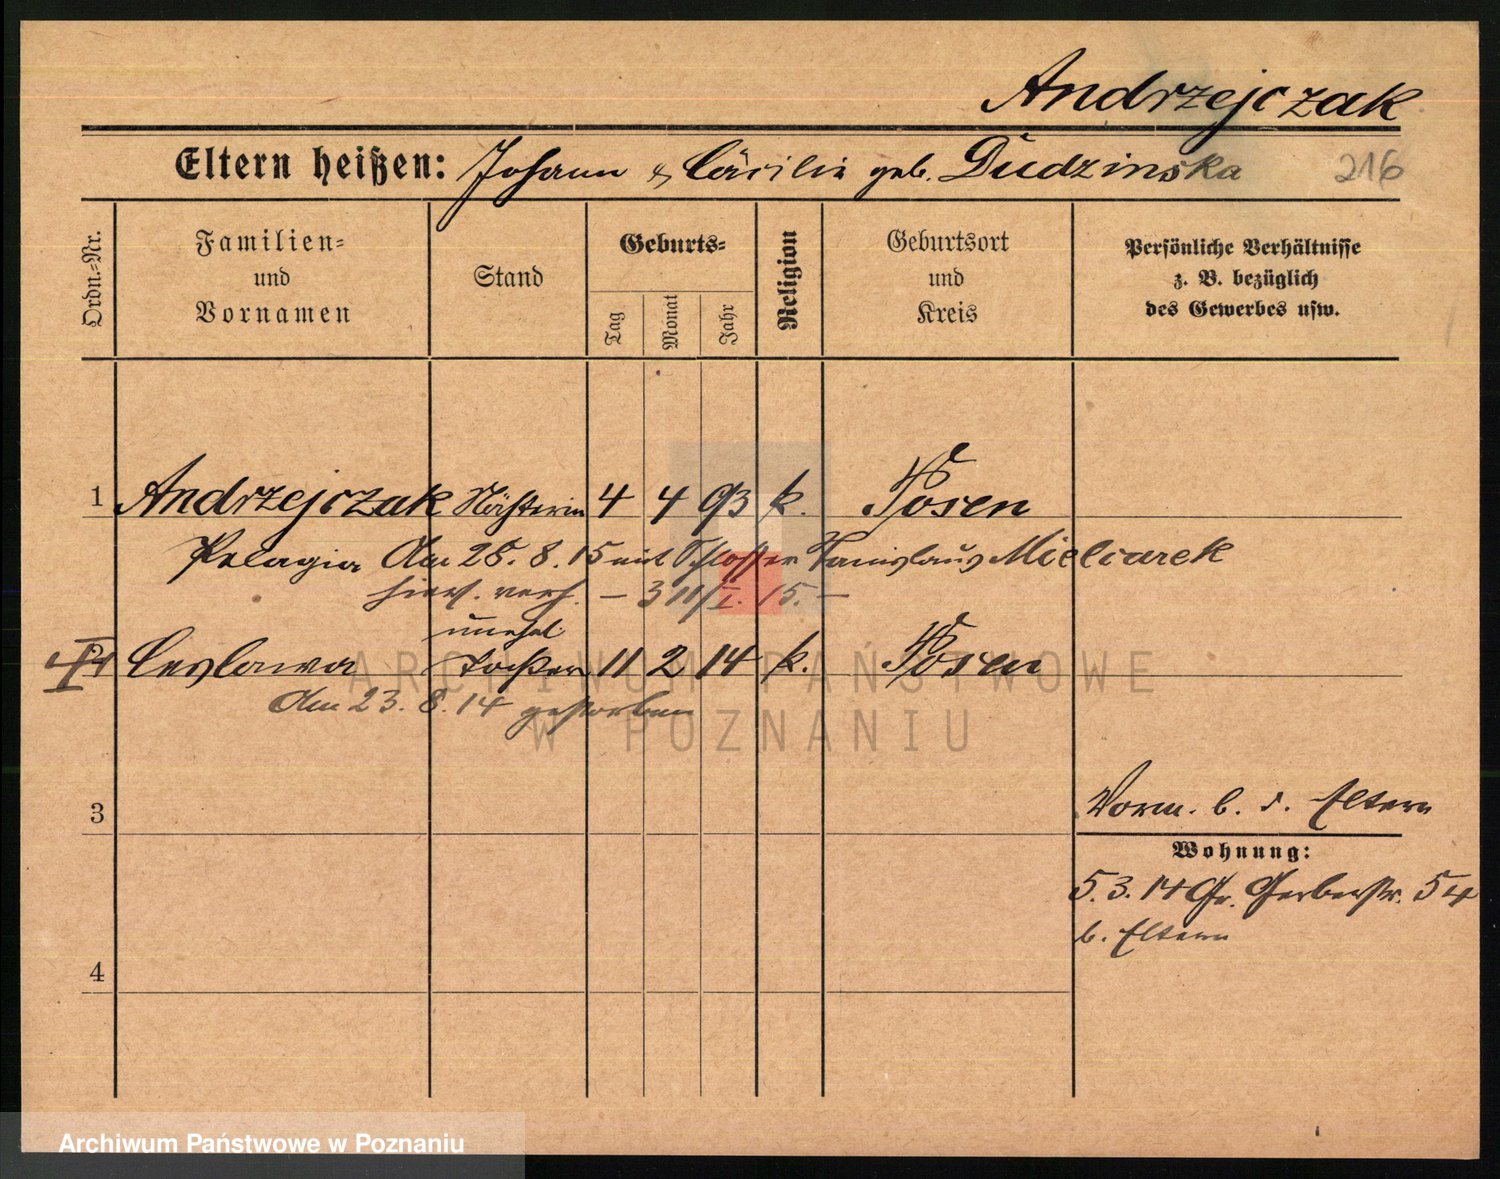 Andrzejczak
Eltern heißen: Johann & Cäcilie geb. Dudzinska 216
Ordn.-Nr.
Familien-
und
Vornamen
Stand
Geburts-
Tag
Monat
Jahr
Religion
Geburtsort
und
Kreis
Persönliche Verhältnisse
z. B. bezüglich
des Gewerbes usw.
1 Andrzejczak Nähterin 4 4 93 k. Posen
Pelagia Am 25. 8. 15 mit Schlosser Stanislaus Mielcarek
hier. verh. – 15. –
unehel.
Ceslawa Tochter 11 2 14 k. Posen
Am 23. 8. 14 gestorben
ARCHIWUM PAŃSTWOWE
W POZNANIU
3
Vorm. b. d. Eltern
Wohnung:
5. 3. 14 Gr. Gerberstr. 54
b. Eltern
4
Archiwum Państwowe w Poznaniu